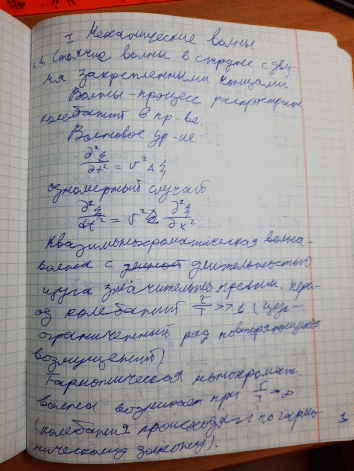 I Механические волны
1.1. Стоячие волны в струне с дву-
мя закрепленными концами
Волны - процесс распростран
колебаний в пр-ве.
Волновое ур-ие
∂²ξ/∂t² = v² Δξ
одномерный случай
∂²ξ/∂t² = v² ∂²ξ/∂x²
Квазимонохроматическая волна -
волна с длительностью
цуга значительно превыш. пери-
од колебаний τ/T >> 1 (
ограниченный ряд повторяющихся
возмущений)
Гармоническая монохромат.
волна возникает при τ/T → ∞
(колебания происходят по гармо-
ническому закону).
1